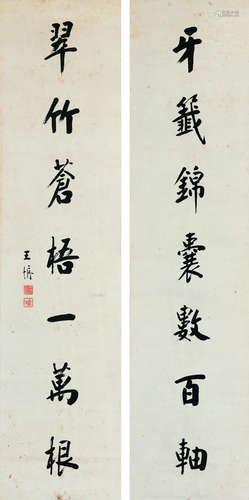 牙籤錦囊數百軸
翠竹蒼梧一萬根